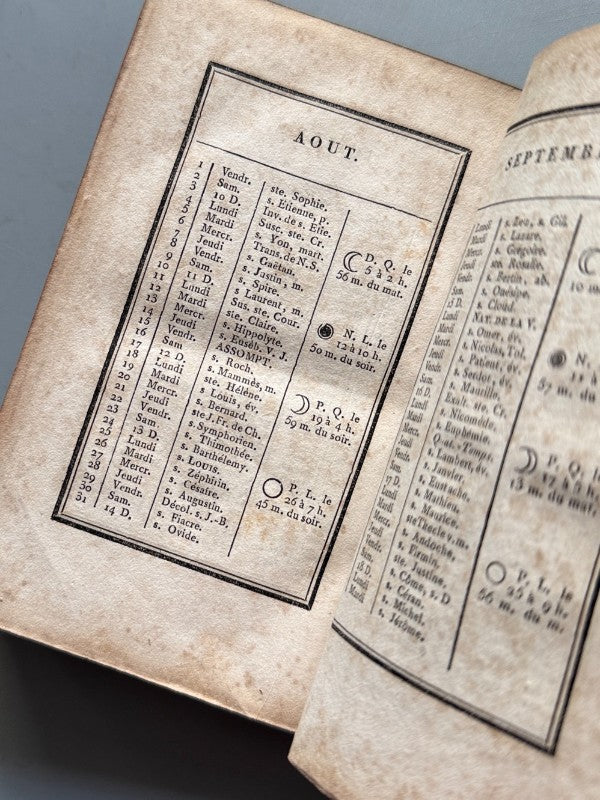 AOUT.
1 Vendr. ste. Sophie.
2 Sam. s. Etienne, p.
3 10 D. Inv. de s. Etie.
4 Lundi Susc. ste. Cr.
5 Mardi s. Yon, mart.
6 Mercr. Trans. de N.S.
7 Jeudi s. Gaëtan.
8 Vendr. s. Justin, m.
9 Sam. s. Spire.
10 11 D. s. Laurent, m.
11 Lundi Sus. ste. Cour.
12 Mardi ste. Claire.
13 Mercr. s. Hippolyte.
14 Jeudi s. Euséb. V. J.
15 Vendr. ASSOMPT.
16 Sam. s. Roch.
17 12 D. s. Mammès, m.
18 Lundi ste. Hélène.
19 Mardi s. Louis, év.
20 Mercr. s. Bernard.
21 Jeudi ste J.Fr. de Ch.
22 Vendr. s. Symphorien.
23 Sam. s. Thimothée.
24 13 D. s. Barthélemy.
25 Lundi s. LOUIS.
26 Mardi s. Zéphirin.
27 Mercr. s. Césaire.
28 Jeudi s. Augustin.
29 Vendr. Décol. s. J.-B.
30 Sam. s. Fiacre.
31 14 D. s. Ovide.
D. Q. le
5 à 2 h.
56 m. du mat.
N. L. le
12 à 10 h.
50 m. du soir.
P. Q. le
19 à 4 h.
59 m. du soir.
P. L. le
26 à 7 h.
45 m. du soir.
SEPTEMB
Lundi s. Leu, s. Gil.
Mardi s. Lazare.
Mercr. s. Grégoire.
Jeudi ste. Rosalie.
Vendr. s. Bertin, ab.
Sam. s. Onésipe.
15 D. s. Cloud.
Lundi NAT. DE LA V.
Mardi s. Omer, év.
Mercr. s. Nicolas, Tol.
Jeudi s. Patient, év.
Vendr. s. Serdot, év.
Sam. s. Maurille.
16 D. Exalt. ste. Cr.
Lundi s. Nicomède.
Mardi s. Euphémie.
Mercr. Q.-de-Temps.
Jeudi s. Lambert, év.
Vendr. s. Janvier.
Sam. s. Eustache.
17 D. s. Mathieu.
Lundi s. Maurice.
Mardi ste Thecle v. m.
Mercr. s. Andoche.
Jeudi s. Firmin.
Vendr. ste. Justine.
Sam. s. Côme, s. D
18 D. s. Céran.
Lundi s. Michel.
Mardi s. Jérôme.
10 m
N. L.
57 m.
P. Q.
m. du mat.
P. L. le
25 à 9 h.
56 m. du m.